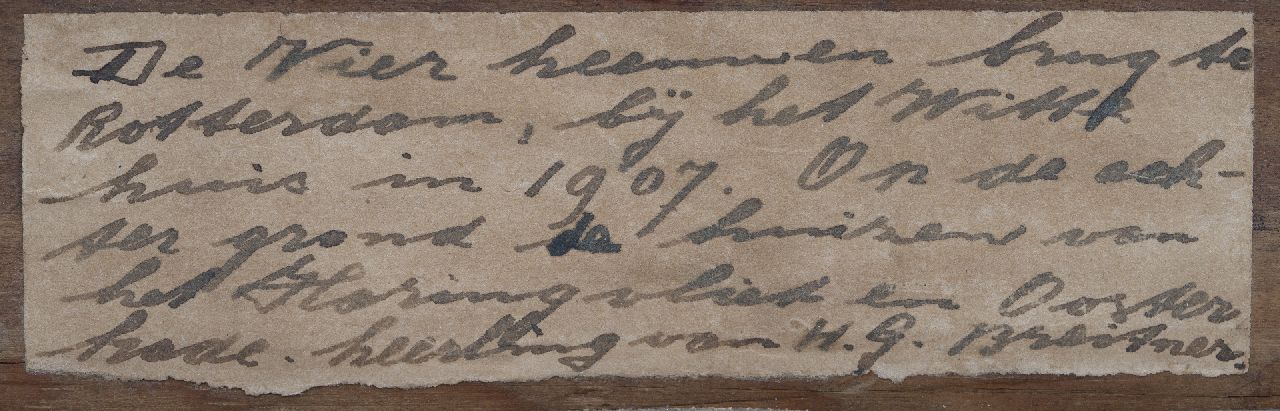 De Vier heeuwen brug te
Rotterdam, bij het Witte
huis in 1907. On de ach-
ter grond de huizen van
het Haringvliet en Ooster
kade. heerling van H. G. Breitner.